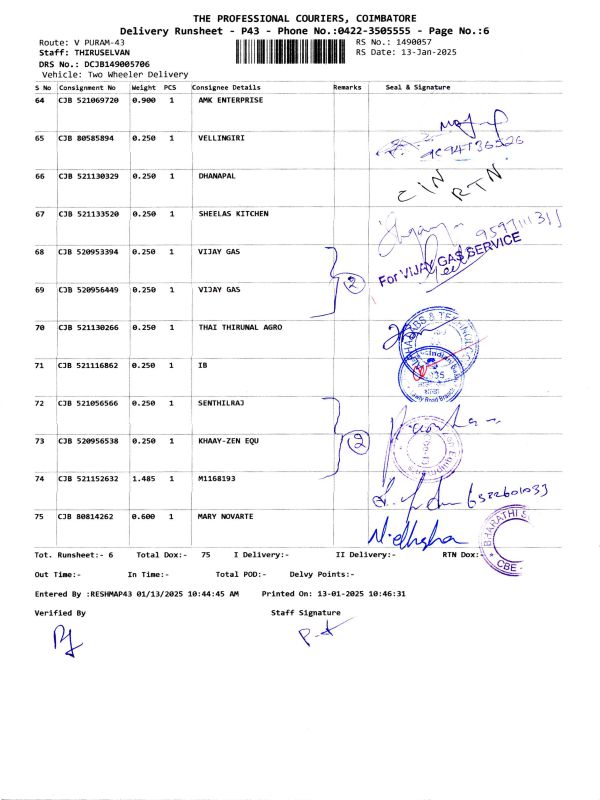 THE PROFESSIONAL COURIERS, COIMBATORE
Delivery Runsheet - P43 - Phone No.:0422-3505555 - Page No.:6
Route: V PURAM-43 RS No.: 1490057
Staff: THIRUSELVAN RS Date: 13-Jan-2025
DRS No.: DCJB149005706
Vehicle: Two Wheeler Delivery
S No Consignment No Weight PCS Consignee Details Remarks Seal & Signature
64 CJB 521069720 0.900 1 AMK ENTERPRISE
65 CJB 80585894 0.250 1 VELLINGIRI
66 CJB 521130329 0.250 1 DHANAPAL
CIN RTN
67 CJB 521133520 0.250 1 SHEELAS KITCHEN
For VIJAY GAS SERVICE
68 CJB 520953394 0.250 1 VIJAY GAS
2
69 CJB 520956449 0.250 1 VIJAY GAS
70 CJB 521130266 0.250 1 THAI THIRUNAL AGRO
71 CJB 521116862 0.250 1 IB
72 CJB 521056566 0.250 1 SENTHILRAJ
2
73 CJB 520956538 0.250 1 KHAAY-ZEN EQU
74 CJB 521152632 1.485 1 M1168193
75 CJB 80814262 0.600 1 MARY NOVARTE
BHARATHI
CBE
Tot. Runsheet:- 6 Total Dox:- 75 I Delivery:- II Delivery:- RTN Dox:-
Out Time:- In Time:- Total POD:- Delvy Points:-
Entered By :RESHMAP43 01/13/2025 10:44:45 AM Printed On: 13-01-2025 10:46:31
Verified By Staff Signature